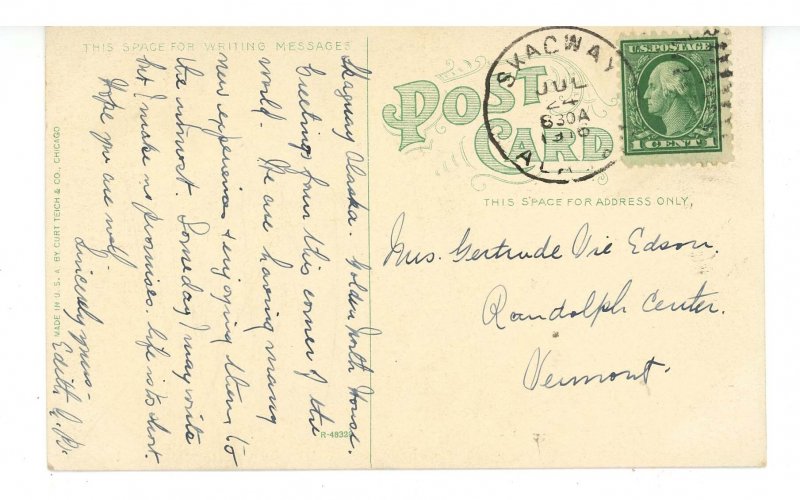 THIS SPACE FOR WRITING MESSAGES
Skaguay Alaska. Golden North House.
Greetings from this corner of the
world. We are having many
new experiences & enjoying them to
the utmost. Someday I may write
but I make no promises. Life is to short.
Hope you are well.
Sincerely yours-
Edith A. B.
MADE IN U. S. A. BY CURT TEICH & CO., CHICAGO
R-48323
POST CARD
THIS SPACE FOR ADDRESS ONLY,
SKAGWAY
JUL
24
830A
1916
ALAS
U.S. POSTAGE
1 CENT 1
Mrs. Gertrude Vie Edson,
Randolph Center.
Vermont.